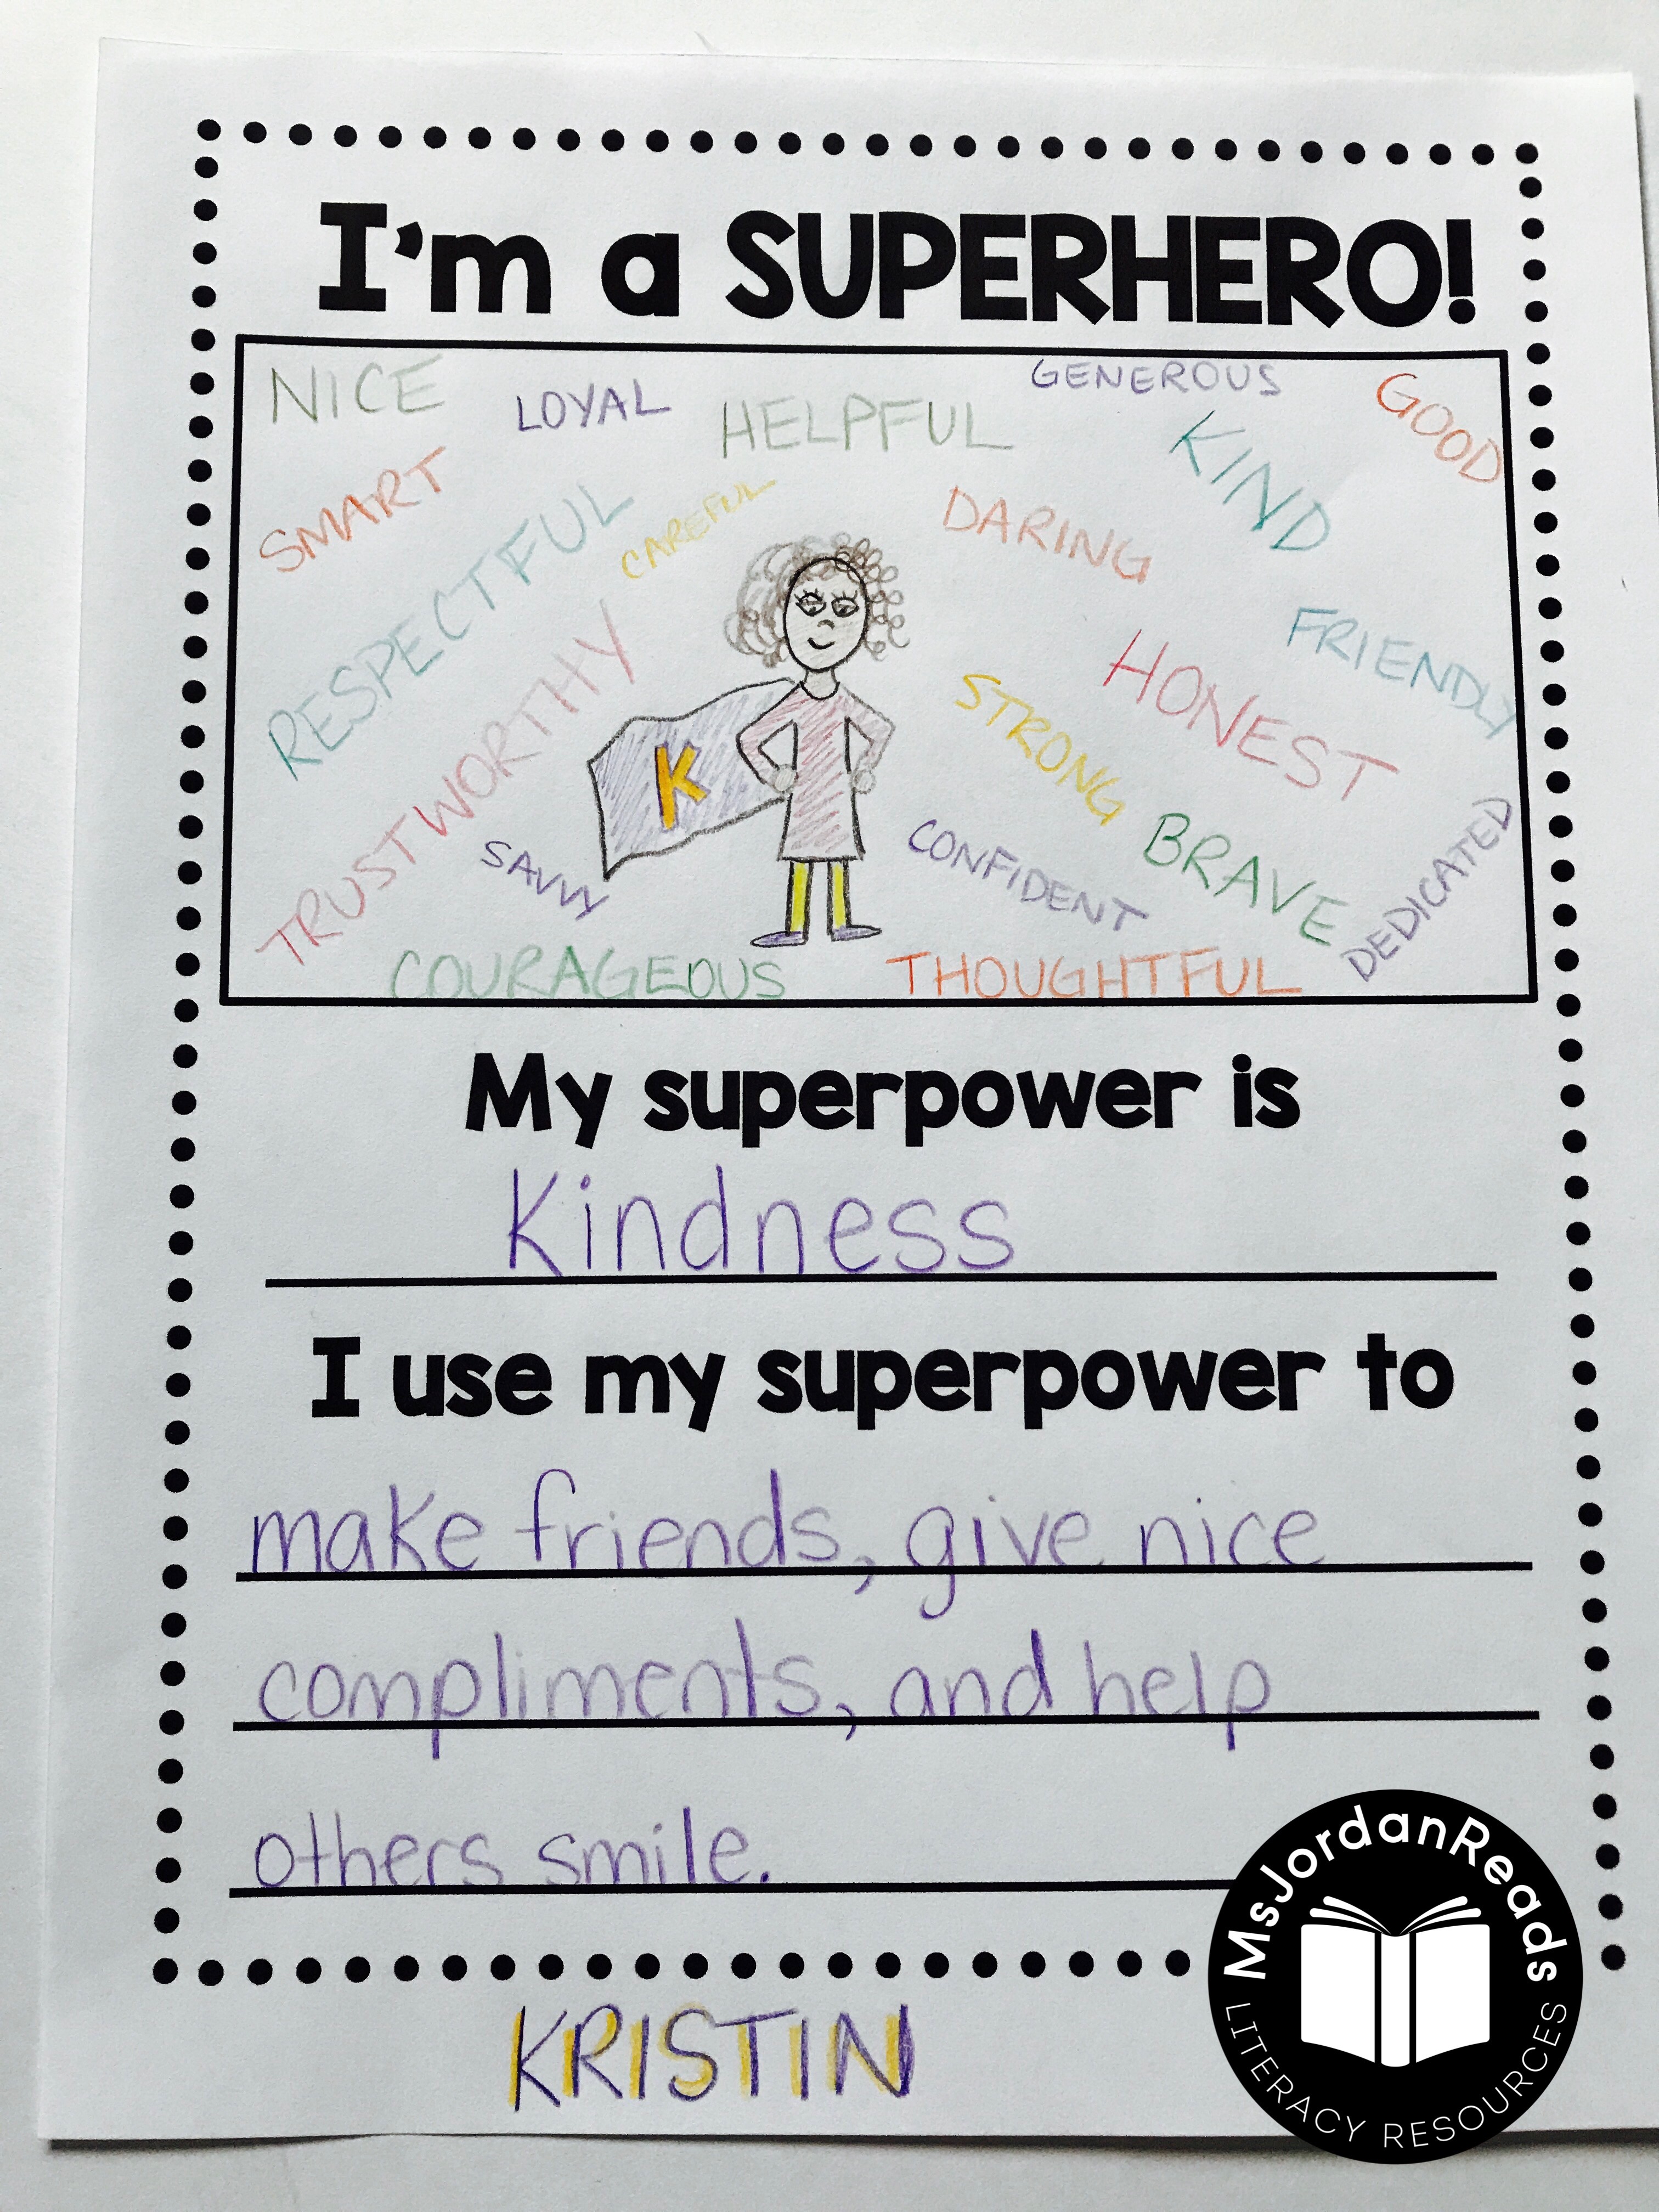 I'm a SUPERHERO!
NICE
LOYAL
HELPFUL
GENEROUS
GOOD
SMART
RESPECTFUL
CAREFUL
DARING
KIND
FRIENDLY
TRUSTWORTHY
STRONG
HONEST
K
SAVVY
CONFIDENT
BRAVE
DEDICATED
COURAGEOUS
THOUGHTFUL
My superpower is
Kindness
I use my superpower to
make friends, give nice
compliments, and help
others smile.
KRISTIN
MsJordanReads
LITERACY RESOURCES